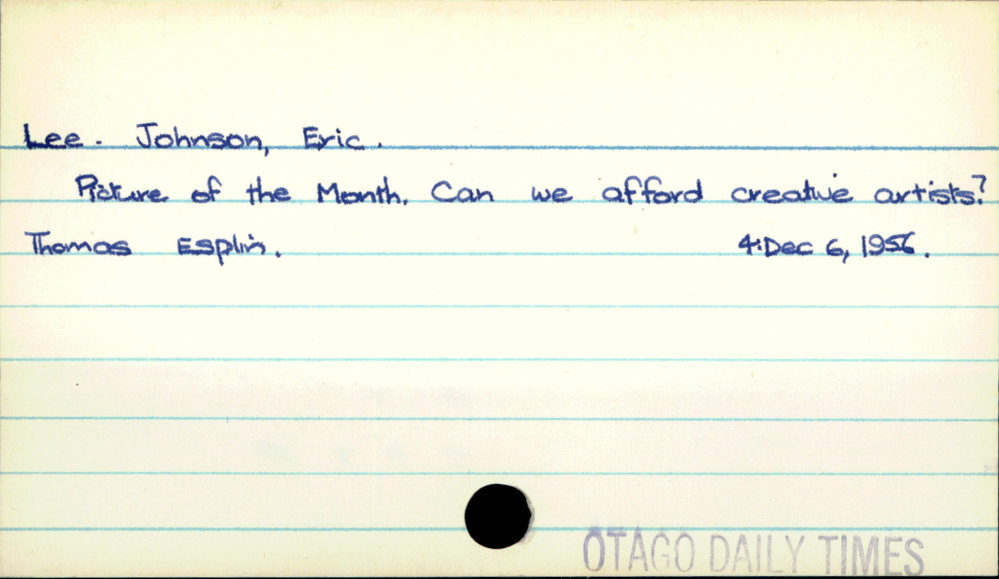 Lee. Johnson, Eric.
Picture of the Month. Can we afford creative artists?
Thomas Esplin. 4:Dec 6, 1956.
OTAGO DAILY TIMES